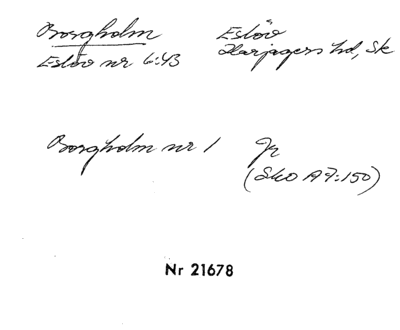 Borgholm Eslöv
Eslöv nr 6:43 Harjagers hd, Sk
Borgholm nr 1 Jr
(SkO A7:150)
Nr 21678